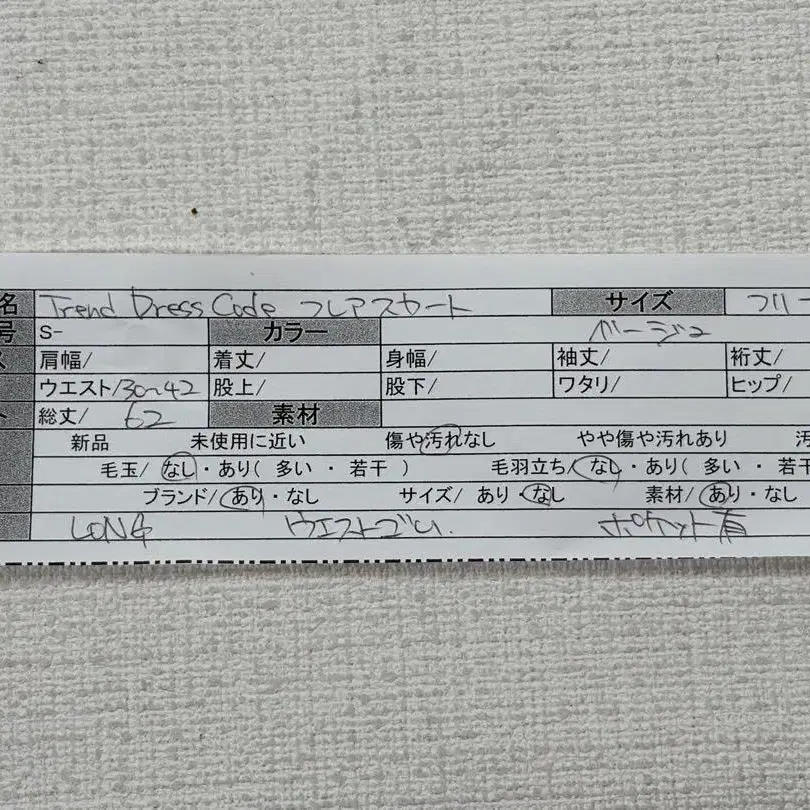 名 Trend Dress Code フレアスカート サイズ フリー
号 S- カラー ベージュ
肩幅/ 着丈/ 身幅/ 袖丈/ 裄丈/
ウエスト/30~42 股上/ 股下/ ワタリ/ ヒップ/
ト 総丈/ 62 素材
新品 未使用に近い 傷や汚れなし やや傷や汚れあり 汚
毛玉/ なし・あり( 多い ・ 若干 ) 毛羽立ち/ なし・あり( 多い ・ 若干
ブランド/ あり・なし サイズ/ あり・なし 素材/ あり・なし
LONG ウエストゴム ポケット有